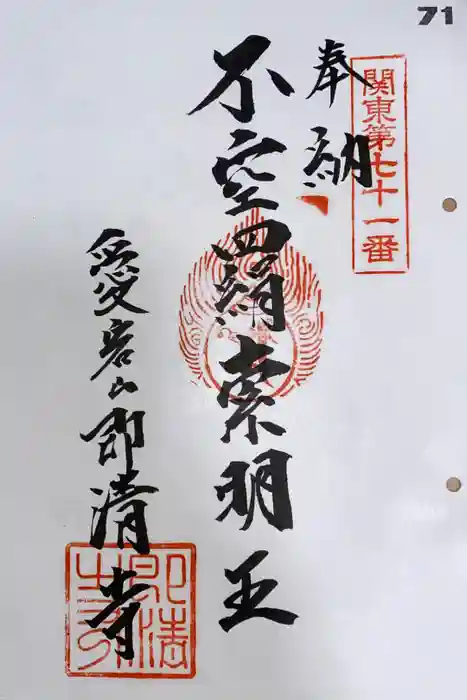 71
関東第七十一番
奉納
不空羂索明王
愛宕山即清寺